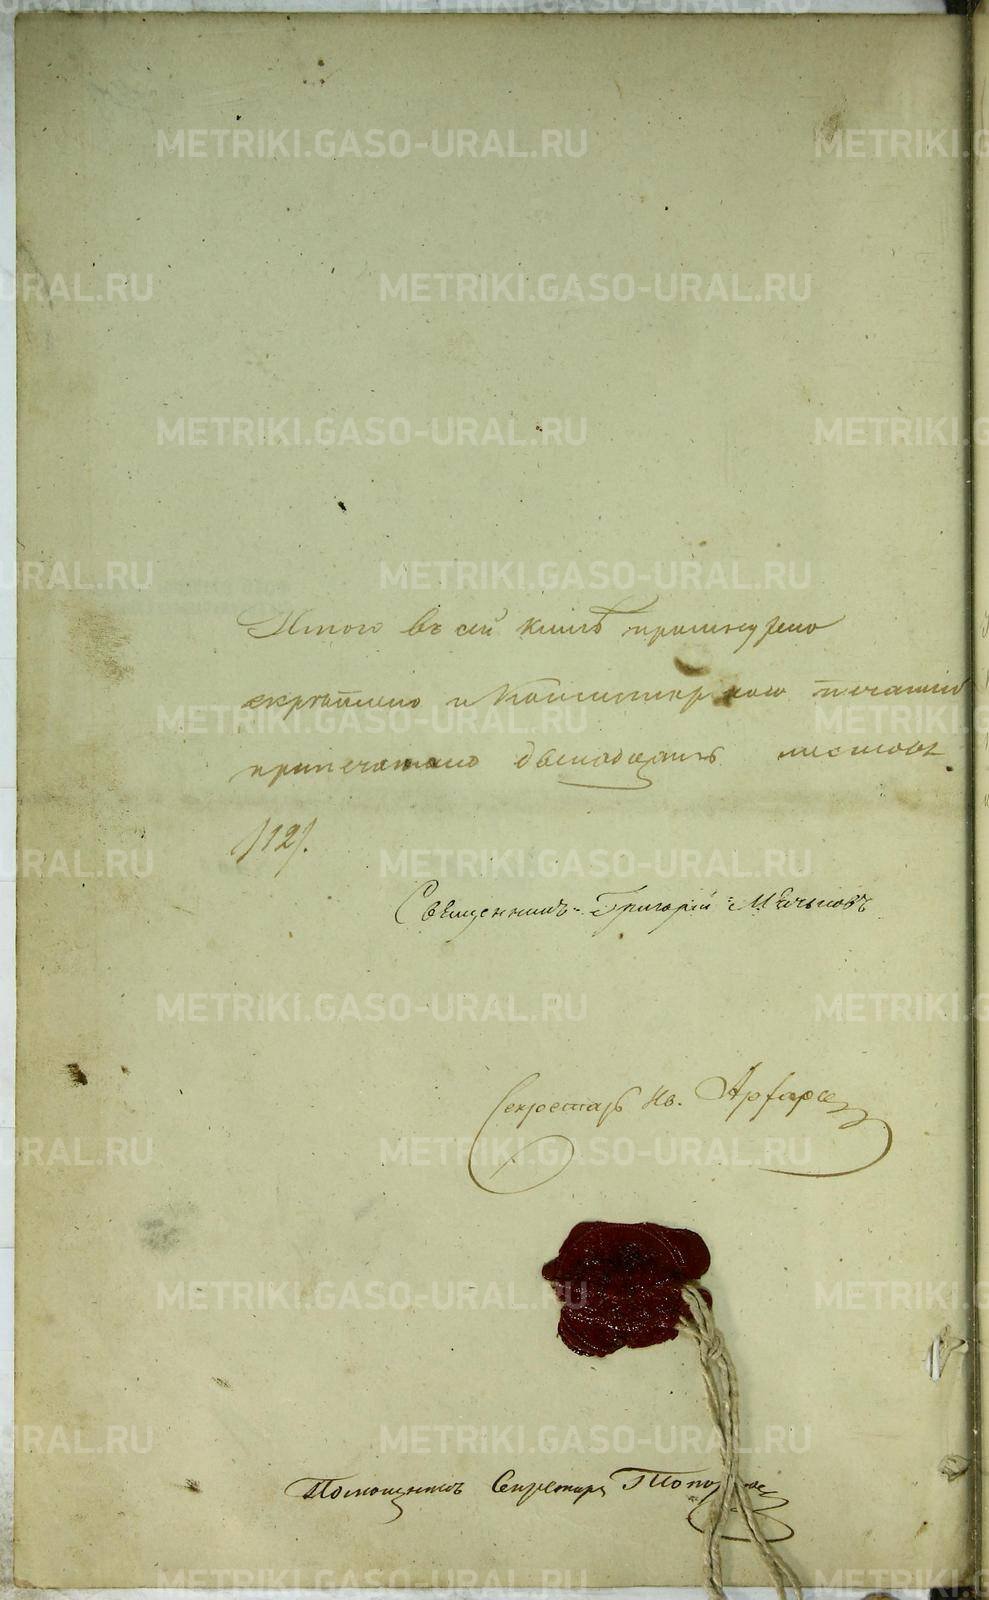 Итого въ сей книгѣ прошнуровано
скрѣплено и Консисторскою печатью
припечатано двенадцать листовъ
/12/.
Священникъ Григорій
Секретарь Ив.
Помощникъ Секретаря
METRIKI.GASO-URAL.RU